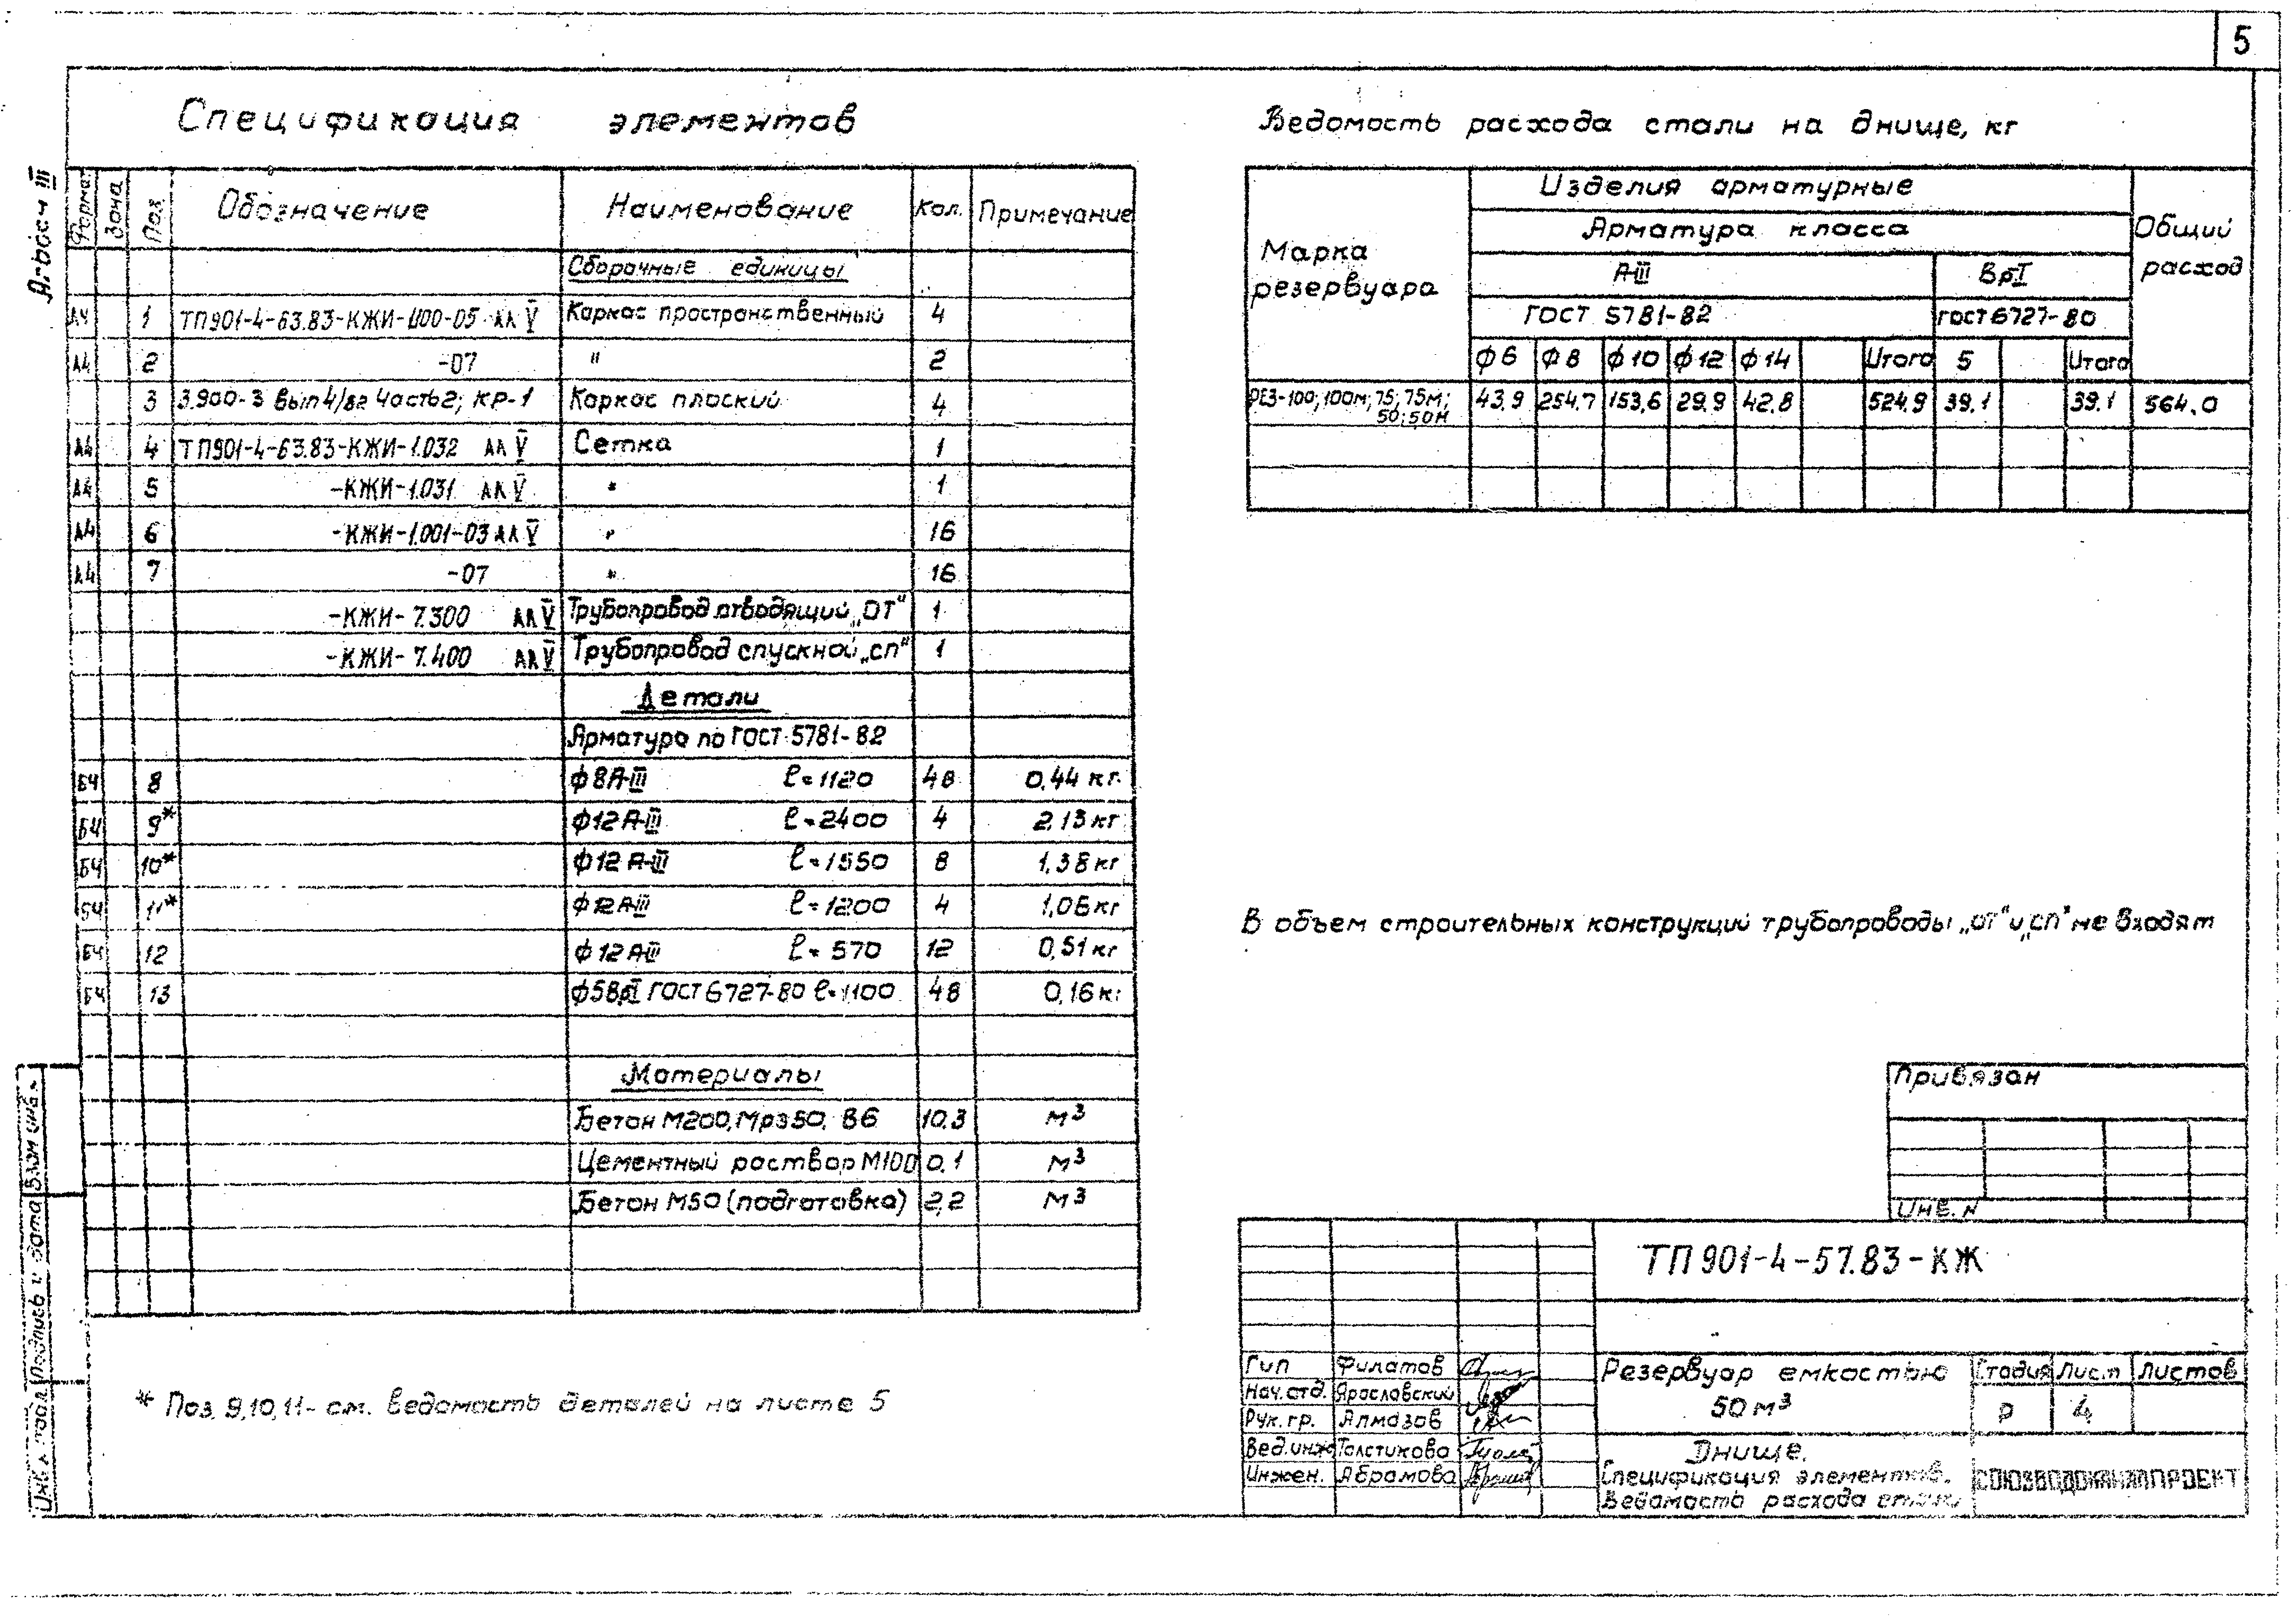 5
Альбом III
Спецификация элементов
Формат Зона Поз. Обозначение Наименование Кол. Примечание
Сборочные единицы
А4 1 ТП901-4-63.83-КЖИ-1.100-05 АЛ V Каркас пространственный 4
А4 2 -07 " 2
3 3.900-3 вып4/82 Часть2; КР-1 Каркас плоский 4
А4 4 ТП901-4-63.83-КЖИ-1.032 АЛ V Сетка 1
А4 5 -КЖИ-1.031 АЛ V " 1
А4 6 -КЖИ-1.001-03 АЛ V " 16
А4 7 -07 " 16
-КЖИ-7.300 АЛ V Трубопровод отводящий „ОТ" 1
-КЖИ-7.400 АЛ V Трубопровод спускной „СП" 1
Детали
Арматура по ГОСТ 5781-82
БЧ 8 ф8А-III ℓ=1120 48 0,44 кг
БЧ 9* ф12А-III ℓ=2400 4 2.13 кг
БЧ 10* ф12А-III ℓ=1550 8 1,38 кг
БЧ 11* ф12А-III ℓ=1200 4 1,06 кг
БЧ 12 ф12А-III ℓ=570 12 0,51 кг
БЧ 13 ф5Вр-I ГОСТ 6727-80 ℓ=1100 48 0,16 кг
Материалы
Бетон М200, Мрз50, В6 10.3 м³
Цементный раствор М100 0,1 м³
Бетон М50 (подготовка) 2,2 м³
* Поз. 9,10,11- см. ведомость деталей на листе 5
Ведомость расхода стали на днище, кг
Марка резервуара
Изделия арматурные
Арматура класса
Общий расход
А-III Вр-I
ГОСТ 5781-82 ГОСТ 6727-80
ф6 ф8 ф10 ф12 ф14 Итого 5 Итого
РЕЗ-100; 100М; 75; 75М; 43,9 254.7 153,6 29.9 42.8 524.9 39.1 39.1 564.0
50; 50М
В объем строительных конструкций трубопроводы „ОТ" и „СП" не входят
Привязан
Инв. N
ТП 901-4-57.83-КЖ
Гип Филатов
Нач. отд. Ярославский
Рук. гр. Алмазов
Вед. инж Толстикова
Инжен. Абрамова
Резервуар емкостью
50 м³
Стадия Лист Листов
Р 4
Днище.
Спецификация элементов.
Ведомость расхода стали
СОЮЗВОДОКАНАЛПРОЕКТ
Инв. N подл. Подпись и дата Взам инв. N